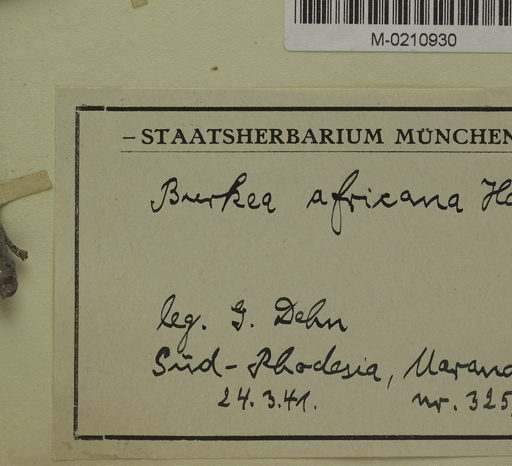 M-0210930
– STAATSHERBARIUM MÜNCHEN
Burkea africana
leg. G. Dehn
Süd-Rhodesia,
24.3.41. nr. 325